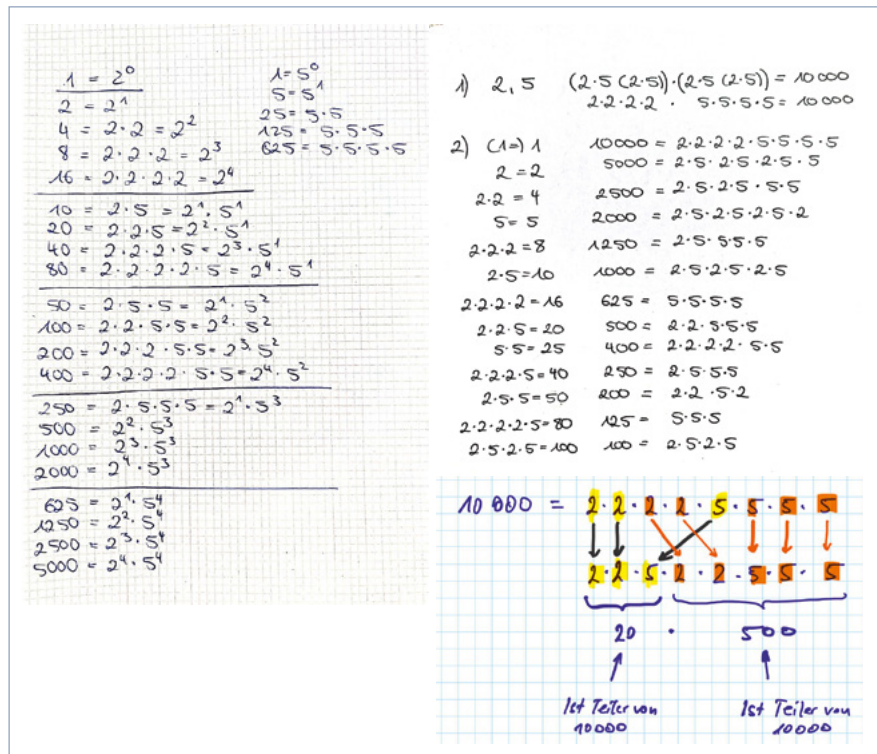 1 = 2⁰
2 = 2¹
4 = 2·2 = 2²
8 = 2·2·2 = 2³
16 = 2·2·2·2 = 2⁴
1 = 5⁰
5 = 5¹
25 = 5·5
125 = 5·5·5
625 = 5·5·5·5
10 = 2·5 = 2¹·5¹
20 = 2·2·5 = 2²·5¹
40 = 2·2·2·5 = 2³·5¹
80 = 2·2·2·2·5 = 2⁴·5¹
50 = 2·5·5 = 2¹·5²
100 = 2·2·5·5 = 2²·5²
200 = 2·2·2·5·5 = 2³·5²
400 = 2·2·2·2·5·5 = 2⁴·5²
250 = 2·5·5·5 = 2¹·5³
500 = 2²·5³
1000 = 2³·5³
2000 = 2⁴·5³
625 = 2¹·5⁴
1250 = 2²·5⁴
2500 = 2³·5⁴
5000 = 2⁴·5⁴
1) 2,5 (2·5(2·5))·(2·5(2·5)) = 10000
2·2·2·2 · 5·5·5·5 = 10000
2) (1=) 1
2 = 2
2·2 = 4
5 = 5
2·2·2 = 8
2·5 = 10
2·2·2·2 = 16
2·2·5 = 20
5·5 = 25
2·2·2·5 = 40
2·5·5 = 50
2·2·2·2·5 = 80
2·5·2·5 = 100
10000 = 2·2·2·2·5·5·5·5
5000 = 2·5·2·5·2·5·5
2500 = 2·5·2·5·5·5
2000 = 2·5·2·5·2·5·2
1250 = 2·5·5·5·5
1000 = 2·5·2·5·2·5
625 = 5·5·5·5
500 = 2·2·5·5·5
400 = 2·2·2·2·5·5
250 = 2·5·5·5
200 = 2·2·5·2
125 = 5·5·5
100 = 2·5·2·5
10 000 = 2·2·2·2·5·5·5·5
2·2·5·2·2·5·5·5
20 · 500
Ist Teiler von
10000
Ist Teiler von
10000